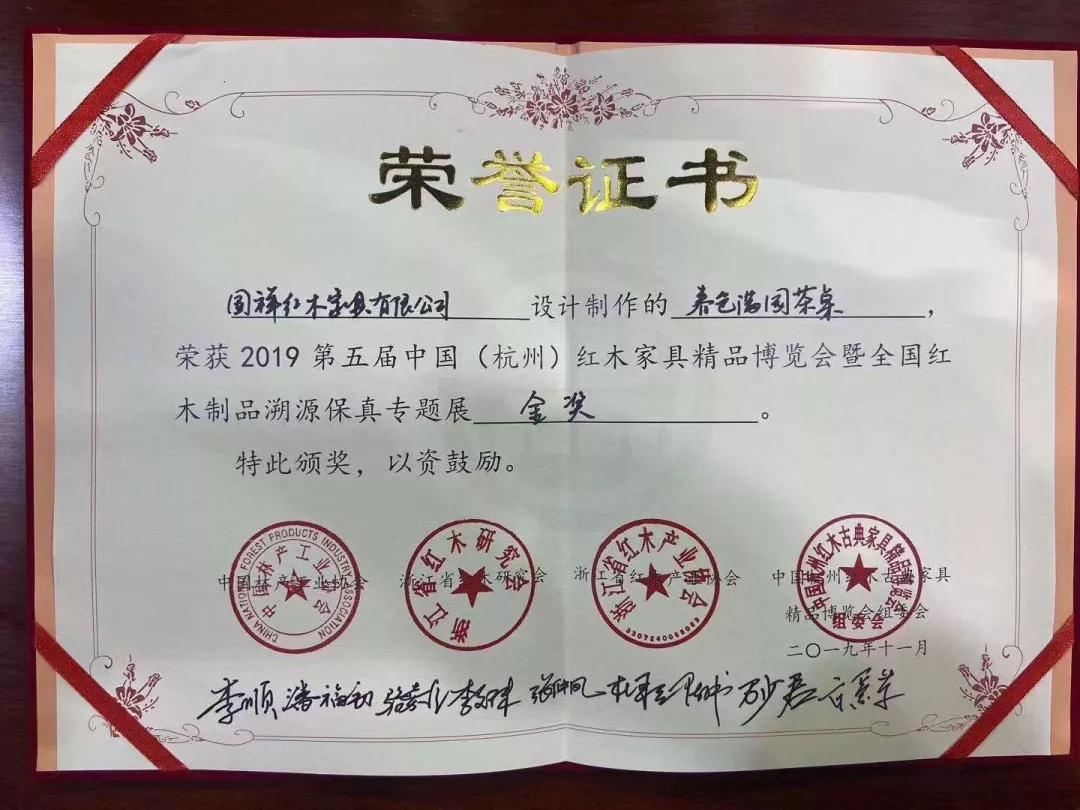 荣誉证书
国祥红木家具有限公司 设计制作的 春色满园茶桌，
荣获2019第五届中国（杭州）红木家具精品博览会暨全国红
木制品溯源保真专题展 金奖 。
特此颁奖，以资鼓励。
CHINA NATIONAL FOREST PRODUCTS INDUSTRY ASSOCIATION
中国林产工业协会
浙江省红木研究会
浙江省红木产业协会
3307240058083
中国杭州红木古典家具精品博览会
组委会
中国林产工业协会 浙江省红木研究会 浙江省红木产业协会 中国杭州红木古典家具
精品博览会组委会
二〇一九年十一月
李顺 潘福初